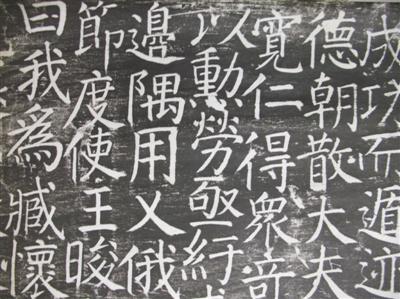 成功而遁迹
德朝散大夫
寬仁得眾竒
以勲勞亟紆
邊隅用乂俄
節度使王晙
曰我爲臧懷